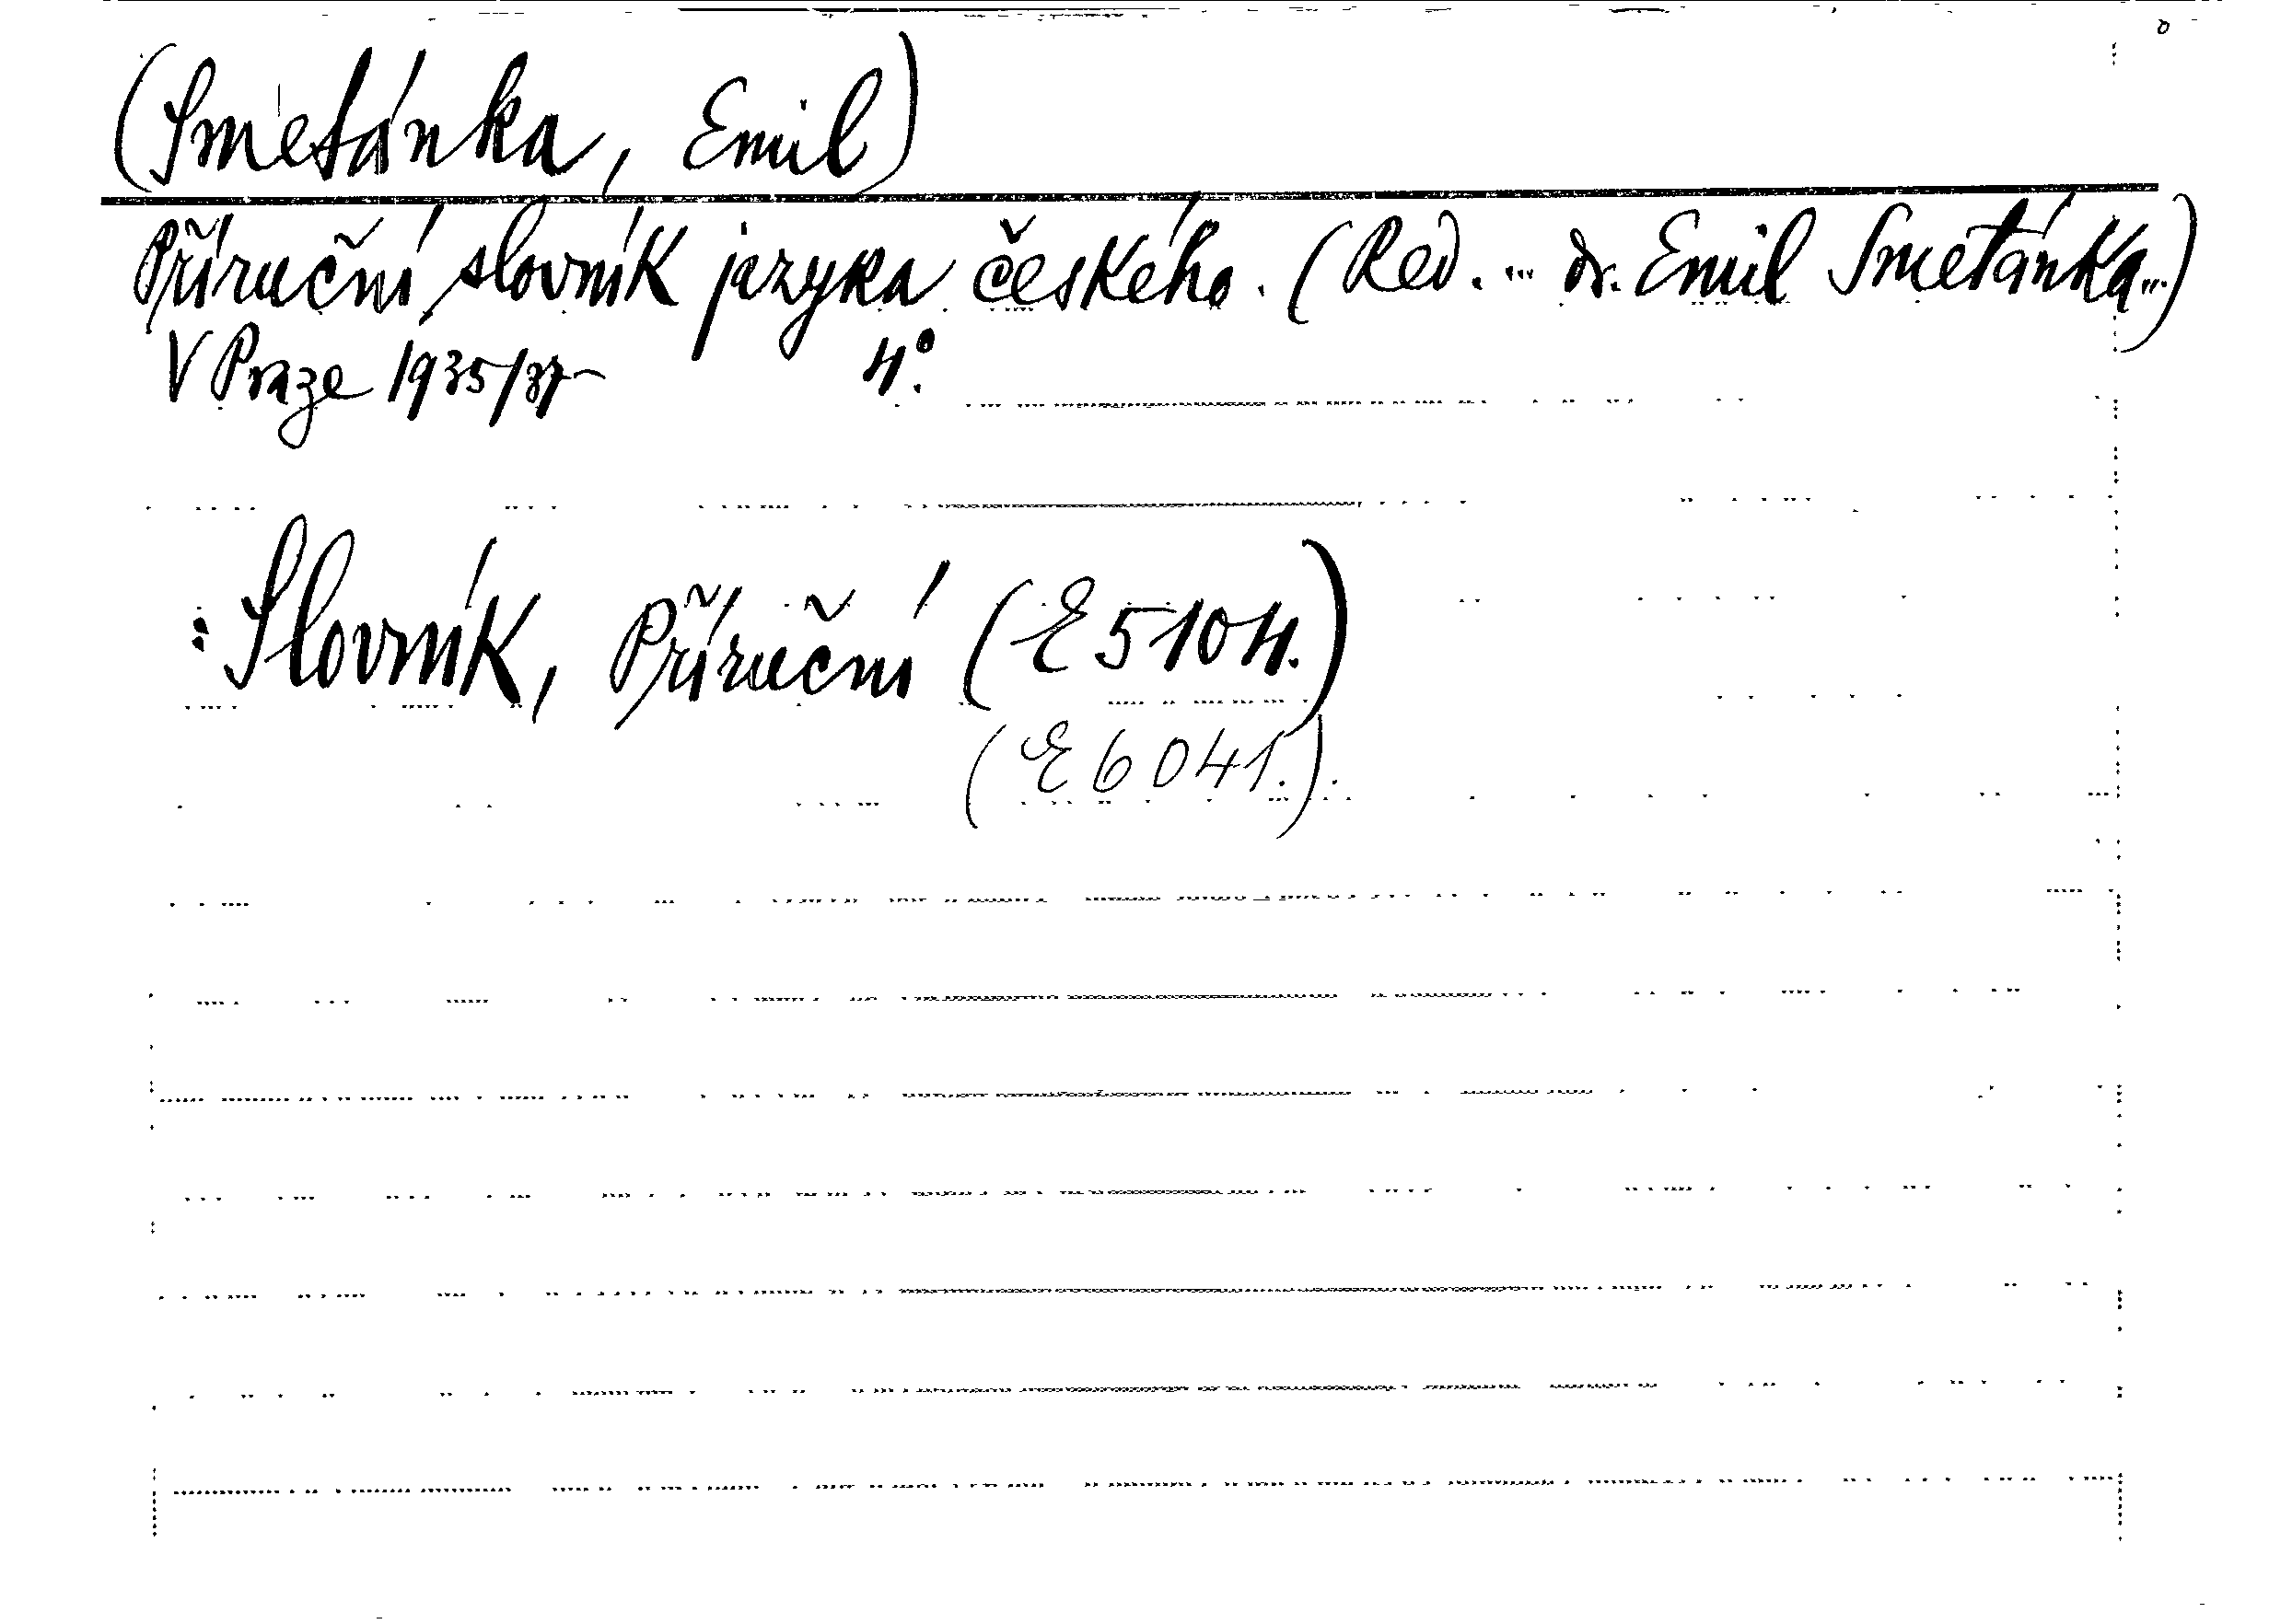 (Smetánka, Emil)
Příruční slovník jazyka českého. (Red. ... dr. Emil Smetánka...)
V Praze 1935/37- 4°.
: Slovník, Příruční (E 5104.)
(E 6041.).